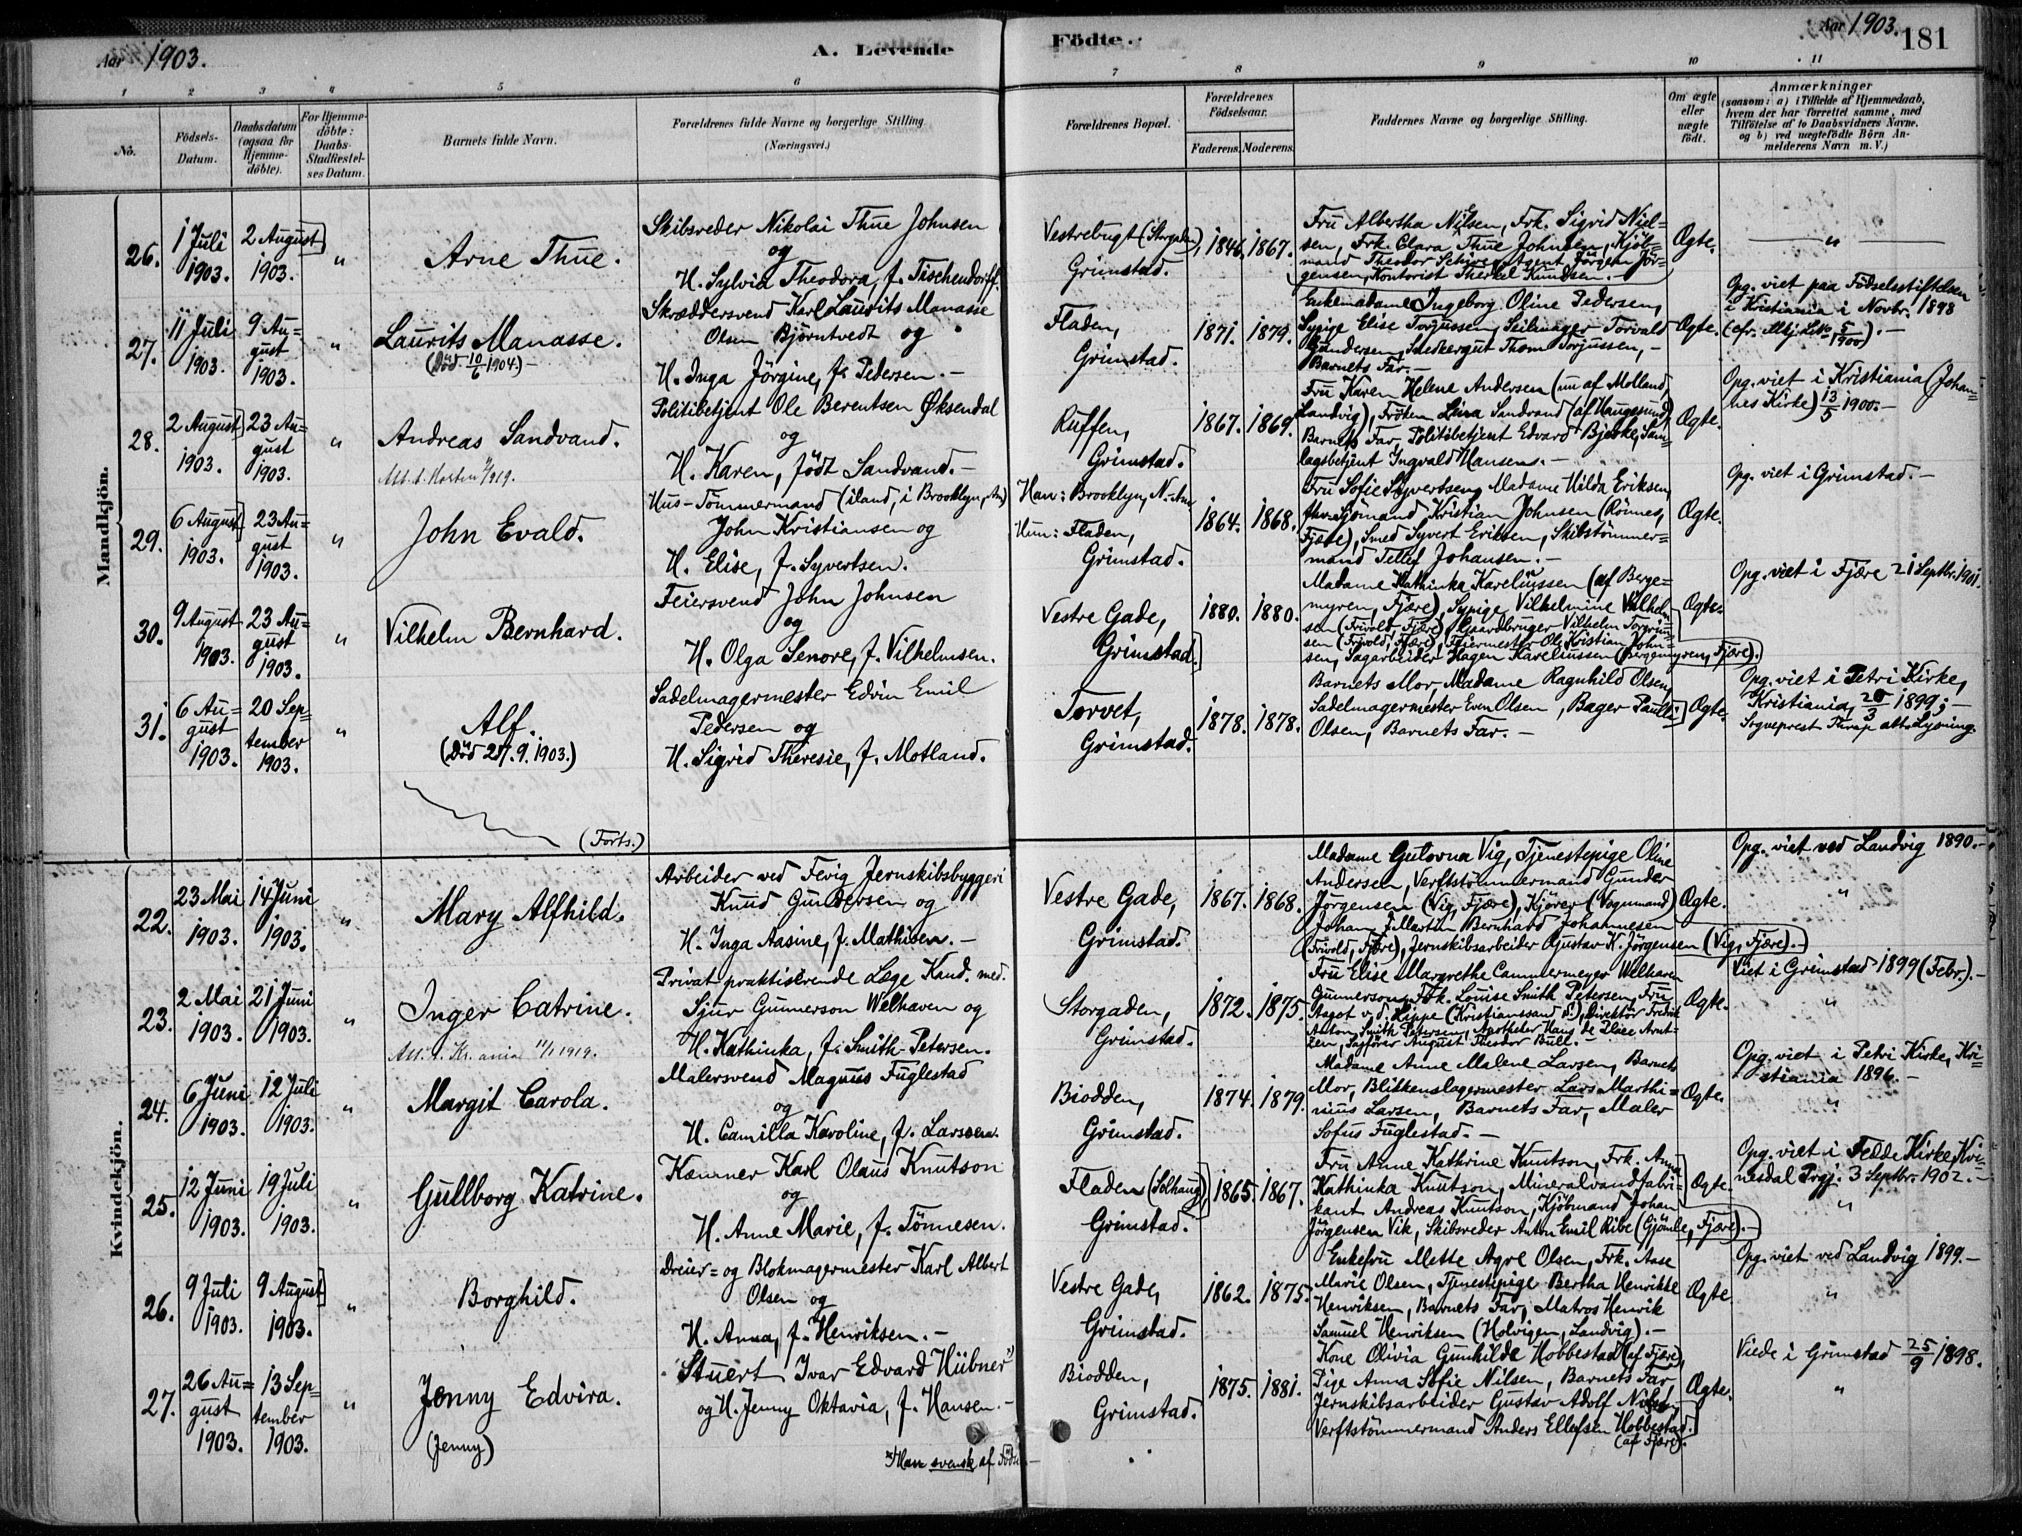 Aar 1903.
A. Levende
Födte.
Aar 1903.
181
1 2 3 4 5 6 7 8 9 10 11
No.
Födsels-
Datum.
Daabsdatum
(ogsaa for
Hjemme-
döbte).
For Hjemme-
döbte:
Daabs-
Stadfæstel-
ses Datum.
Barnets fulde Navn.
Forældrenes fulde Navne og borgerlige Stilling.
(Næringsvei.)
Forældrenes Bopæl.
Forældrenes
Födselsaar.
Faderens. Moderens.
Faddernes Navne og borgerlige Stilling.
Om ægte
eller
uægte
födt.
Anmærkninger
(saasom: a) i Tilfælde af Hjemmedaab,
hvem der har forrettet samme, med
Tilföielse af to Daabsvidners Navne.
og b) ved uægtefödte Börn An-
melderens Navn m. V.)
Mandkjön.
26.
1 Juli
1903.
2 August
1903.
"
Arne Thue.
Skibsreder Nikolai Thue Johnsen
og
H. Sylvia Theodora, f. Tischendorff.
Vestrebugt (Storgaden),
Grimstad.
1846. 1867.
Fru Albertha Nielsen, Frk. Sigrid Niel-
sen, Frk. Clara Thue Johnsen, Kjöb-
mand Theodor Agent Jörgen Jör-
gensen, Kontorist Therkel Knudsen. -
Ægte.
"
27.
11 Juli
1903.
9 Au-
gust
1903.
"
Laurits Manasse.
(Död 10/6 1904.) -
Skræddersvend Karl Laurits Manasse
Olsen Bjorntvedt og
H. Inga Jörgine, f. Pedersen. -
Fladen,
Grimstad.
1871. 1879.
Enkemadame Ingeborg Oline Pedersen,
Sypige Elise Torjussen, Seilmager Torvald
Gundersen, Snedkergut Thom Torjussen, -
Barnets Far. -
Ægte.
Opg. viet paa Födselsstiftelsen
i Kristiania i Novbr. 1898
5/1900). -
28.
2 August
1903.
23 Au-
gust
1903.
"
Andreas Sandvand.
Att. t. Horten 1919.
Politibetjent Ole Berentsen Øksendal
og
H. Karen, födt Sandvand. -
Ruffen,
Grimstad.
1867. 1869.
Fru Karen Helene Andersen (nu af Molland,
Landvig), Fröken Lina Sandvand (af Haugesund),
Barnets Far, Politibetjent Edvard Bjerke, Sam-
lagsbetjent Ingvald Hansen. -
Ægte.
Opg. viet i Kristiania (Johan-
nes Kirke) 13/5 1900. -
29.
6 August
1903.
23 Au-
gust
1903.
"
John Evald.
Hus-Tömmermand (iland, i Brooklyn, Am)
John Kristiansen og
H. Elise, f. Syvertsen.
Han: Brooklyn, N.-Am
Hun: Fladen,
Grimstad.
1864. 1868.
Fru Sofie Syvertsen, Madame Hilda Eriksen,
fhv. Sjömand Kristian Johnsen (Rönnes,
Fjære), Smed Syvert Eriksen, Skibstömmer-
mand Tellef Johansen. -
Ægte.
Opg. viet i Grimstad. -
30.
9 August
1903.
23 Au-
gust
1903.
"
Vilhelm Bernhard.
Feiersvend John Johnsen
og
H. Olga Lenore, f. Vilhelmsen.
Vestre Gade,
Grimstad.
1880. 1880.
Madame Kathinka Kareliussen (af Berge-
myren, Fjære), Sypige Vilhelmine Vilhelm-
sen (Frivold, Fjære), Gaardbruger Vilhelm
sen (Frivold, Fjære), Feiermester Ole Kristian John-
sen, Sagarbeider Hagen Kareliussen (Bergemyren, Fjære).
Ægte.
Opg. viet i Fjære 21 Septbr. 1901.
31.
6 Au-
gust
1903.
20 Sep-
tember
1903.
"
Alf.
(Död 27.9.1903.)
Sadelmagermester Edvin Emil
Pedersen og
H. Sigrid Theresie, f. Motland.
Torvet,
Grimstad.
1878. 1878.
Barnets Mor, Madame Ragnhild Olsen,
Sadelmagermester Even Olsen, Bager Paulli
Olsen, Barnets Far. -
Ægte.
Opg. viet i Petri Kirke,
Kristiania, 20/3 1899; -
Sogneprest Thrap att. Lysning.
(Forts.)
Kvindekjön.
22.
23 Mai
1903.
14 Juni
1903.
"
Mary Alfhild.
Arbeider ved Fevig Jernskibsbyggeri
Knud Gundersen og
H. Inga Aasine, f. Mathisen. -
Vestre Gade,
Grimstad.
1867. 1868.
Madame Gulovna Vig, Tjenestepige Oline
Andersen, Verftstömmermand Gunder
Jörgensen (Vig, Fjære), Kjörer (Vognmand)
Johan Martin Bernhard Johannesen
(Frivold, Fjære), Jernskibsarbeider Gustav K. Jörgensen (Vig, Fjære). -
Ægte.
Opg. viet ved Landvig 1890. -
"
23.
2 Mai
1903.
21 Juni
1903.
"
Inger Catrine.
Att. t. Kr.ania 11/1 1919.
Privat praktiserende Læge Kand. med.
Sjur Gunnerson Welhaven og
H. Kathinka, f. Smith-Petersen.
Storgaden,
Grimstad.
1872. 1875.
Fru Elise Margrethe Cammermeyer Welhaven
Gunnerson, Frk. Louise Smith Petersen, Fru
Aagot v. d. Lippe (Kristianssand S.), Direktör Fredrik
Anton Smith Petersen, Apotheker Hans
zen, Sagförer August Theodor Bull. -
Ægte.
Viet i Grimstad 1899 (Febr.). -
"
24.
6 Juni
1903.
12 Juli
1903.
"
Margit Carola.
Malersvend Magnus Fuglestad
og
H. Camilla Karoline, f. Larssen.
Biodden,
Grimstad.
1874. 1879.
Madame Anne Malene Larsen, Barnets
Mor, Blikkenslagermester Lars Marthi-
nius Larsen, Barnets Far, Maler
Sofus Fuglestad. -
Ægte.
Opg. viet i Petri Kirke, Kri-
stiania 1896. -
"
25.
12 Juni
1903.
19 Juli
1903.
"
Gullborg Katrine.
Kæmner Karl Olaus Knutson
og
H. Anne Marie, f. Tönnesen.
Fladen (Solhaug)
Grimstad.
1865. 1867.
Fru Anne Kathrine Knutson, Frk. Anna
Kathinka Knutson, Mineralvandfabri-
kant Andreas Knutson, Kjöbmand Johan
Jörgensen Vik, Skibsreder Anton Emil Ribe (Gjömle, Fjære). -
Ægte.
Opg. viet i Fedde Kirke, Kvi-
nesdal Prgj. 3 Septbr. 1902. -
"
26.
9 Juli
1903.
9 August
1903.
"
Borghild.
Dreier- og Blokmagermester Karl Albert
Olsen og
H. Anna, f. Henriksen. -
Vestre Gade,
Grimstad.
1862. 1875.
Enkefru Mette Olsen, Frk. Aase
Marie Olsen, Tjenestepige Bertha Henrikke
Henriksen, Barnets Far, Matros Henrik
Samuel Henriksen (Holvigen, Landvig). -
Ægte.
Opg. viet ved Landvig 1899. -
"
27.
26 Au-
gust
1903.
13 Sep-
tember
1903.
"
Jenny Edvira.
(Jenny)
Stuert Ivar Edvard Hübner *)
og H. Jenny Oktavia, f. Hansen. -
*) Han svensk af
Biodden,
Grimstad.
1875. 1881.
Kone Olivia Gunhilde Hobbestad (af Fjære),
Pige Anna Sofie Nilsen, Barnets Far
Jernskibsarbeider Gustav Adolf Nilsen,
Verftstömmermand Anders Ellefsen Hobbestad.
(af Fjære).
Ægte.
Viede i Grimstad 25/9 1898.
"